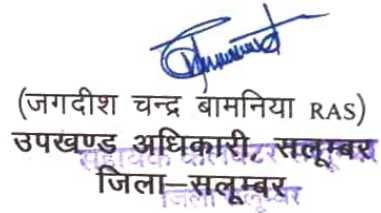 (जगदीश चन्द्र बामनिया RAS)
उपखण्ड अधिकारी, सलूम्बर
जिला–सलूम्बर